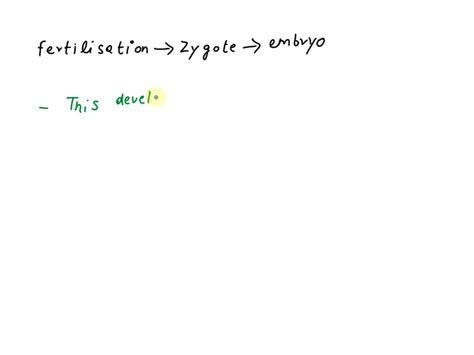 fertilisation → Zygote → embryo
- This devel